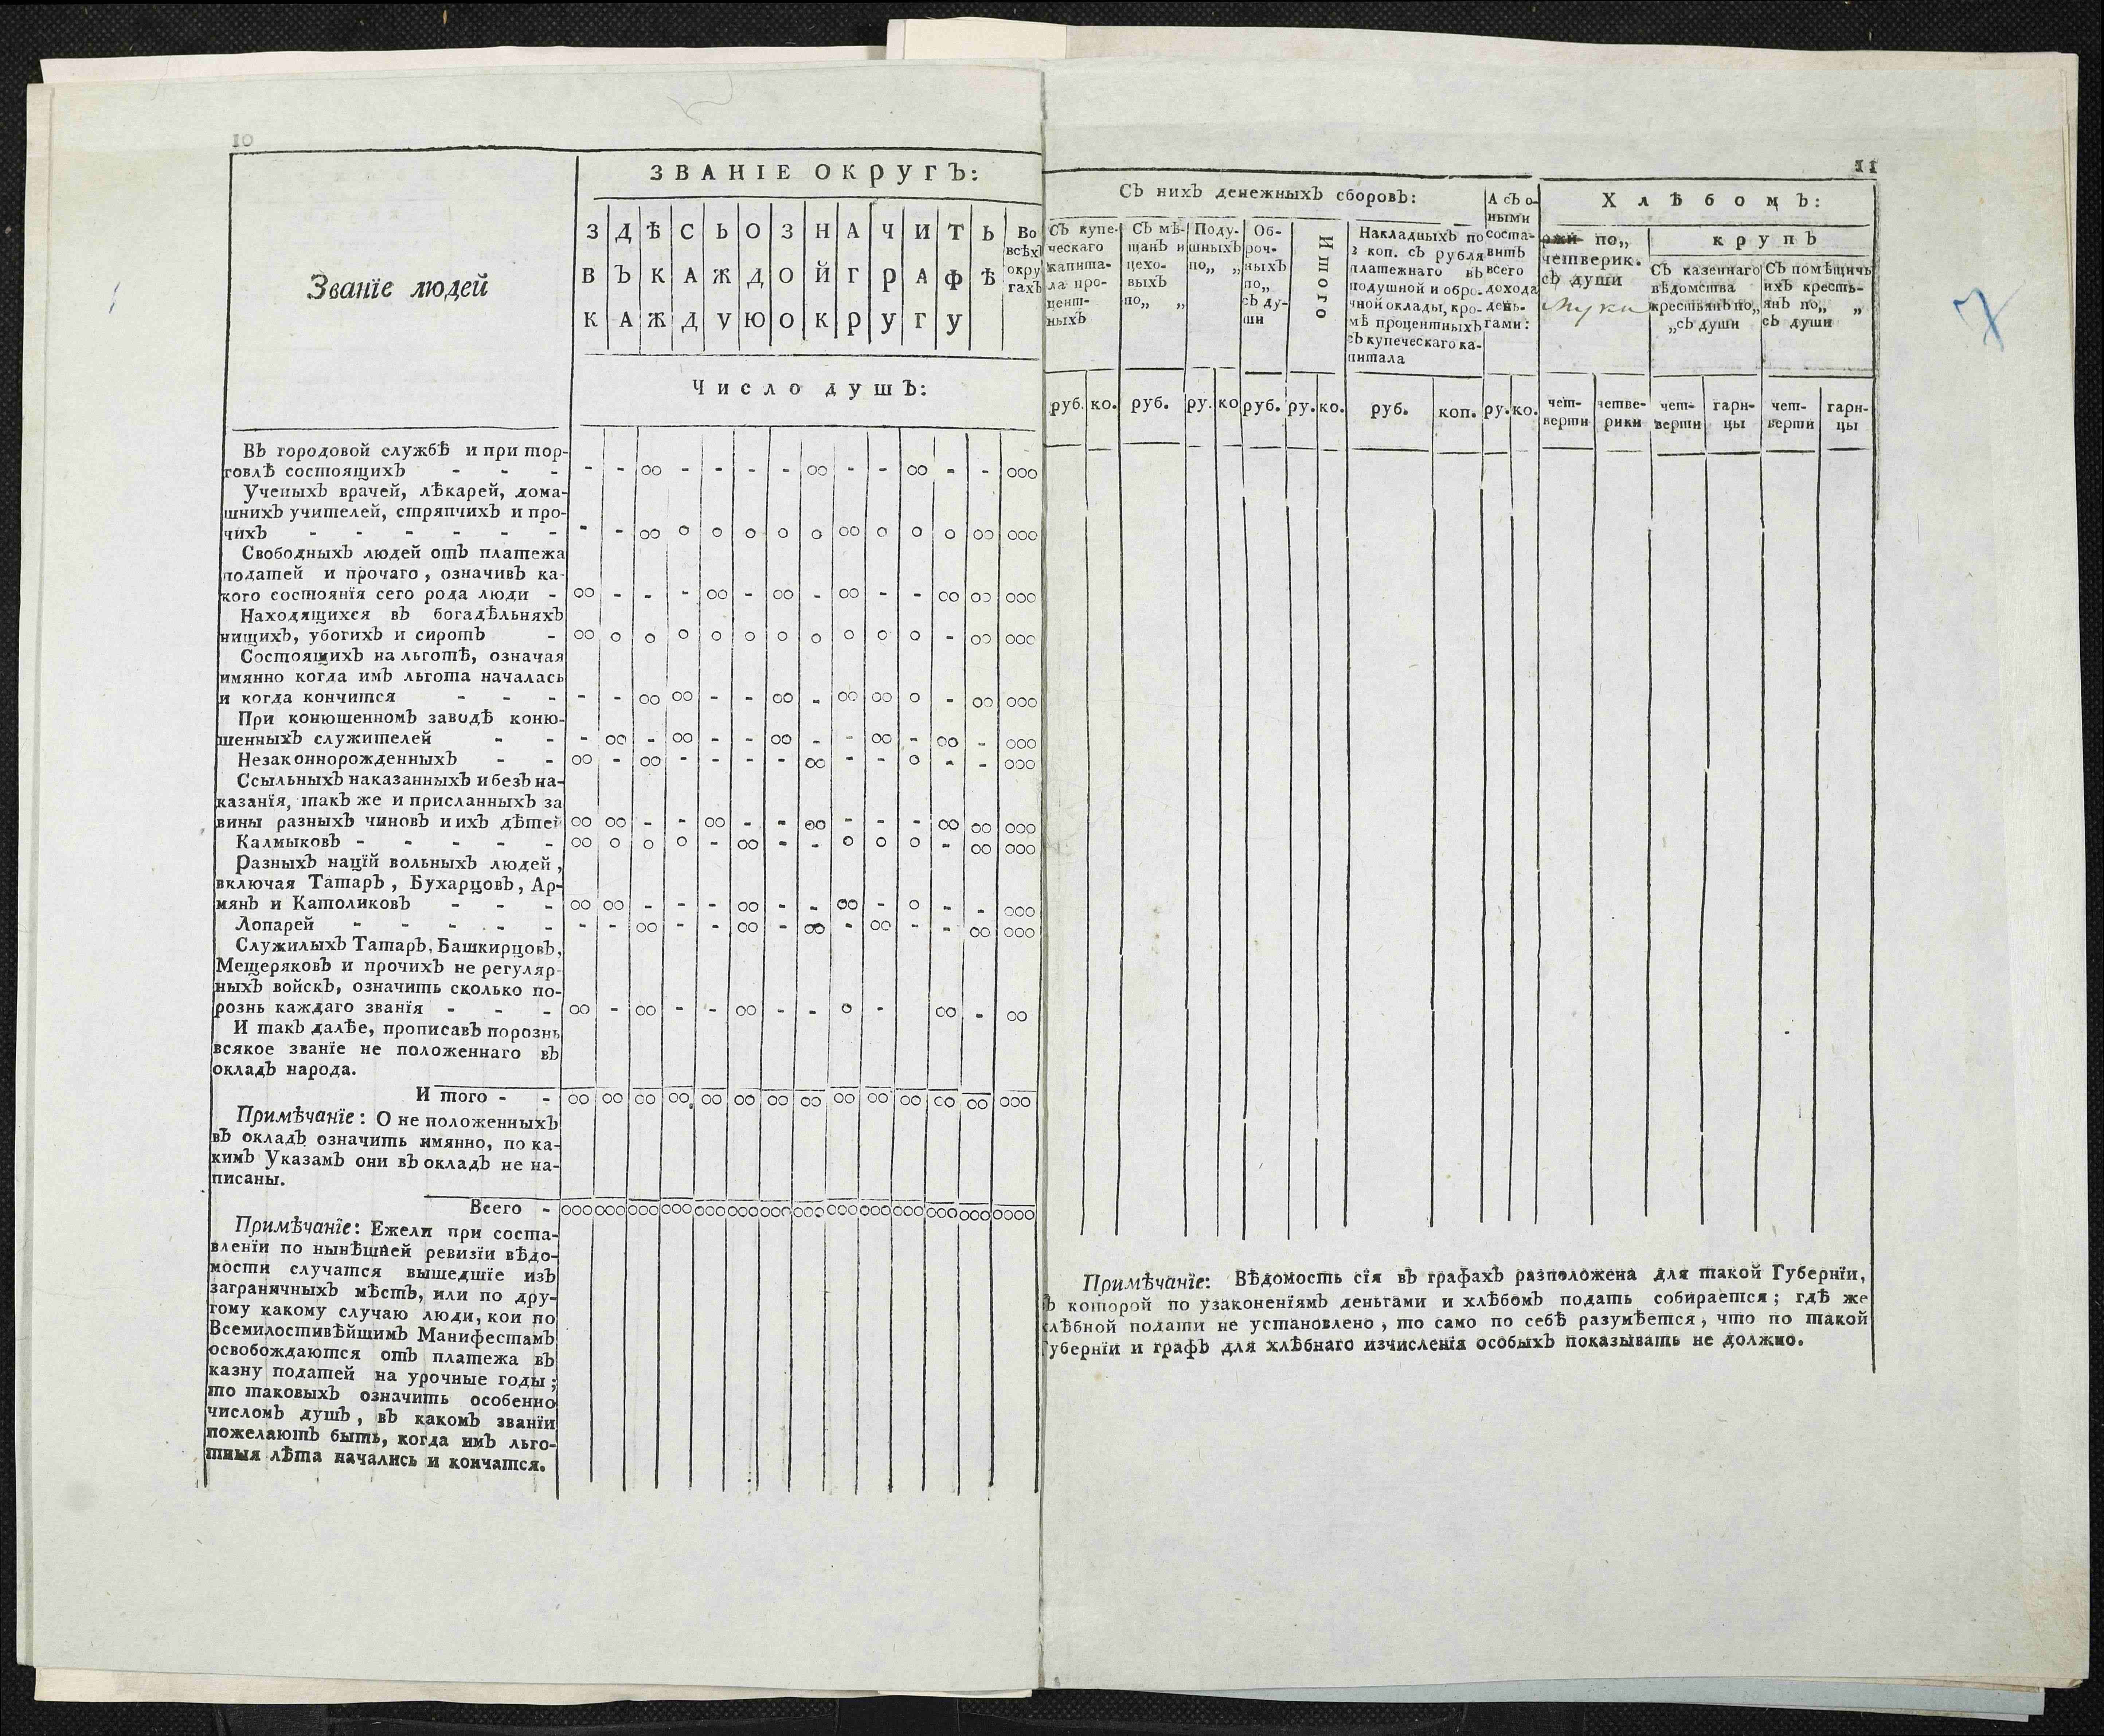 10
ЗВАНІЕ ОКРУГЪ:
Званїе людей
З Д Ѣ С Ь О З Н А Ч И Т Ь
В Ъ К А Ж Д О Й Г Р А Ф Ѣ
К А Ж Д У Ю О К Р У Г У
Во
всѣхъ
окру
гахъ
Число душъ:
Въ городовой службѣ и при тор-
говлѣ состоящихъ - - - - - оо - - - - оо - - оо - - ооо
Ученыхъ врачей, лѣкарей, дома-
шнихъ учителей, стряпчихъ и про-
чихъ - - - - - - - - оо о о о о о оо о о о оо ооо
Свободныхъ людей отъ платежа
податей и прочаго, означивъ ка-
кого состоянїя сего рода люди - оо - - - оо - оо - оо - - оо оо ооо
Находящихся въ богадѣльняхъ
нищихъ, убогихъ и сиротъ - оо о о о о о о о о о о - оо ооо
Состоящихъ на льготѣ, означая
имянно когда имъ льгота началась
и когда кончится - - - - - оо оо - - оо - оо оо о - оо ооо
При конюшенномъ заводѣ коню-
шенныхъ служителей - - - оо - оо - - оо - - оо - оо - ооо
Незаконнорожденныхъ - - оо - оо - - - - оо - - о - - ооо
Ссыльныхъ наказанныхъ и безъ на-
казанїя, такъ же и присланныхъ за
вины разныхъ чиновъ и ихъ дѣтей оо оо - - оо - - оо - - - оо оо ооо
Калмыковъ - - - - - оо о о о - оо - - о о о - оо ооо
Разныхъ нацїй вольныхъ людей,
включая Татаръ, Бухарцовъ, Ар-
мянъ и Католиковъ - - - оо оо - - - оо - - оо - о - - ооо
Лопарей - - - - - - - оо - - оо - оо - оо - - оо ооо
Служилыхъ Татаръ, Башкирцовъ,
Мещеряковъ и прочихъ не регуляр-
ныхъ войскъ, означить сколько по-
рознь каждаго званїя - - - оо - оо - - оо - - о - оо - оо
И такъ далѣе, прописавъ порознь
всякое званїе не положеннаго въ
окладъ народа.
И того - - оо оо оо оо оо оо оо оо оо оо оо оо оо ооо
Примѣчанїе: О не положенныхъ
въ окладъ означить имянно, по ка-
кимъ Указамъ они въ окладъ не на-
писаны.
Всего - ооо ооо ооо ооо ооо ооо ооо ооо ооо ооо ооо ооо ооо оооо
Примѣчанїе: Ежели при соста-
вленїи по нынѣшней ревизїи вѣдо-
мости случатся вышедшїе изъ
заграничныхъ мѣстъ, или по дру-
гому какому случаю люди, кои по
Всемилостивѣйшимъ Манифестамъ
освобождаются отъ платежа въ
казну податей на урочные годы;
то таковыхъ означить особенно
числомъ душъ, въ какомъ званїи
пожелаютъ быть, когда имъ льго-
тныя лѣта начались и кончатся.
11
Съ нихъ денежныхъ сборовъ:
Съ купе-
ческаго
капита-
ла про-
цент-
ныхъ
Съ мѣ-
щанъ и
цехо-
выхъ
по„ „
Поду-
шныхъ
по„ „
Об-
роч-
ныхъ
по„
съ ду-
ши
Итого
Накладныхъ по
2 коп. съ рубля
платежнаго въ
подушной и обро-
чной оклады, кро-
мѣ процентныхъ
съ купеческаго ка-
питала
А съ о-
ными
соста-
витъ
всего
дохода
день-
гами:
Хлѣбомъ:
ржи по„
четверик.
съ души
муки
крупъ
Съ казеннаго
вѣдомства
крестьянъ по„
„съ души
Съ помѣщичь
ихъ кресть-
янъ по„ „
съ души
руб. ко. руб. ру. ко руб. ру. ко. руб. коп. ру. ко.
чет-
верти
четве-
рики
чет-
верти
гарн-
цы
чет-
верти
гарн-
цы
Примѣчанїе: Вѣдомость сїя въ графахъ разположена для такой Губернїи,
въ которой по узаконенїямъ деньгами и хлѣбомъ подать собирается; гдѣ же
хлѣбной подати не установлено, то само по себѣ разумѣется, что по такой
Губернїи и графъ для хлѣбнаго изчисленїя особыхъ показывать не должно.
7